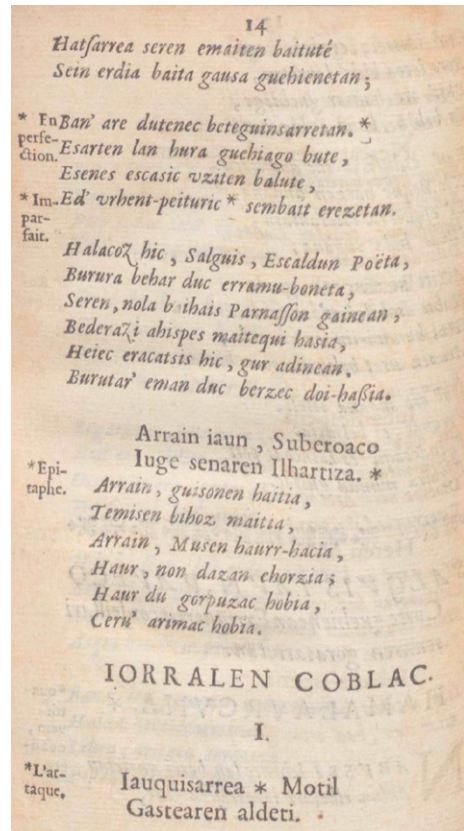 14
Hatſarrea seren emaiten baituté
Sein erdia baita gausa guehienetan;
* En perfe-ction.
Ban' are dutenec beteguinsarretan. *
Esarten lan hura guehiago bute,
Esenes escasic vziten balute,
* Im-par-fait.
Ed' vrhent-peituric * sembait erezetan.
Halacoz hic, Salguis, Escaldun Poëta,
Burura behar duc erramu-boneta,
Seren, nola baihais Parnaſſon gainean,
Bederazi ahispes maitequi hasia,
Heiec eracatsis hic, gur adinean.
Burutar' eman duc berzec doi-haßia.
Arrain iaun, Suberoaco
Iuge senaren Ilhartiza. *
*Epi-taphe.
Arrain, guisonen haitia,
Temisen bihoz maitia,
Arrain, Musen haurr-hacia,
Haur, non dazan ehorzia;
Haur du gorpuzac hobia,
Ceru' arimac hobia.
IORRALEN COBLAC.
I.
*L'at-taque.
Iauquisarrea * Motil
Gastearen aldeti.